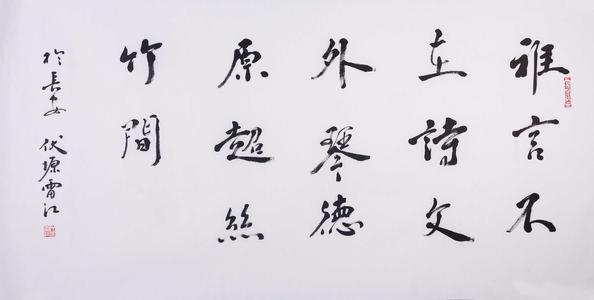 雅言不
在詩文
外琴德
原超絲
竹間
於長安 伏塬雷江